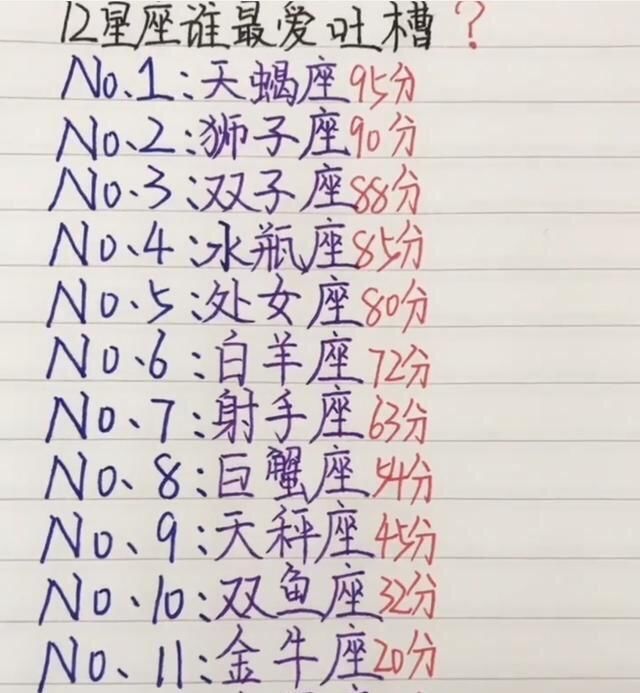 12星座谁最爱吐槽？
No.1:天蝎座95分
No.2:狮子座90分
No.3:双子座88分
No.4:水瓶座85分
No.5:处女座80分
No.6:白羊座72分
No.7:射手座63分
No.8:巨蟹座54分
No.9:天秤座45分
No.10:双鱼座32分
No.11:金牛座20分